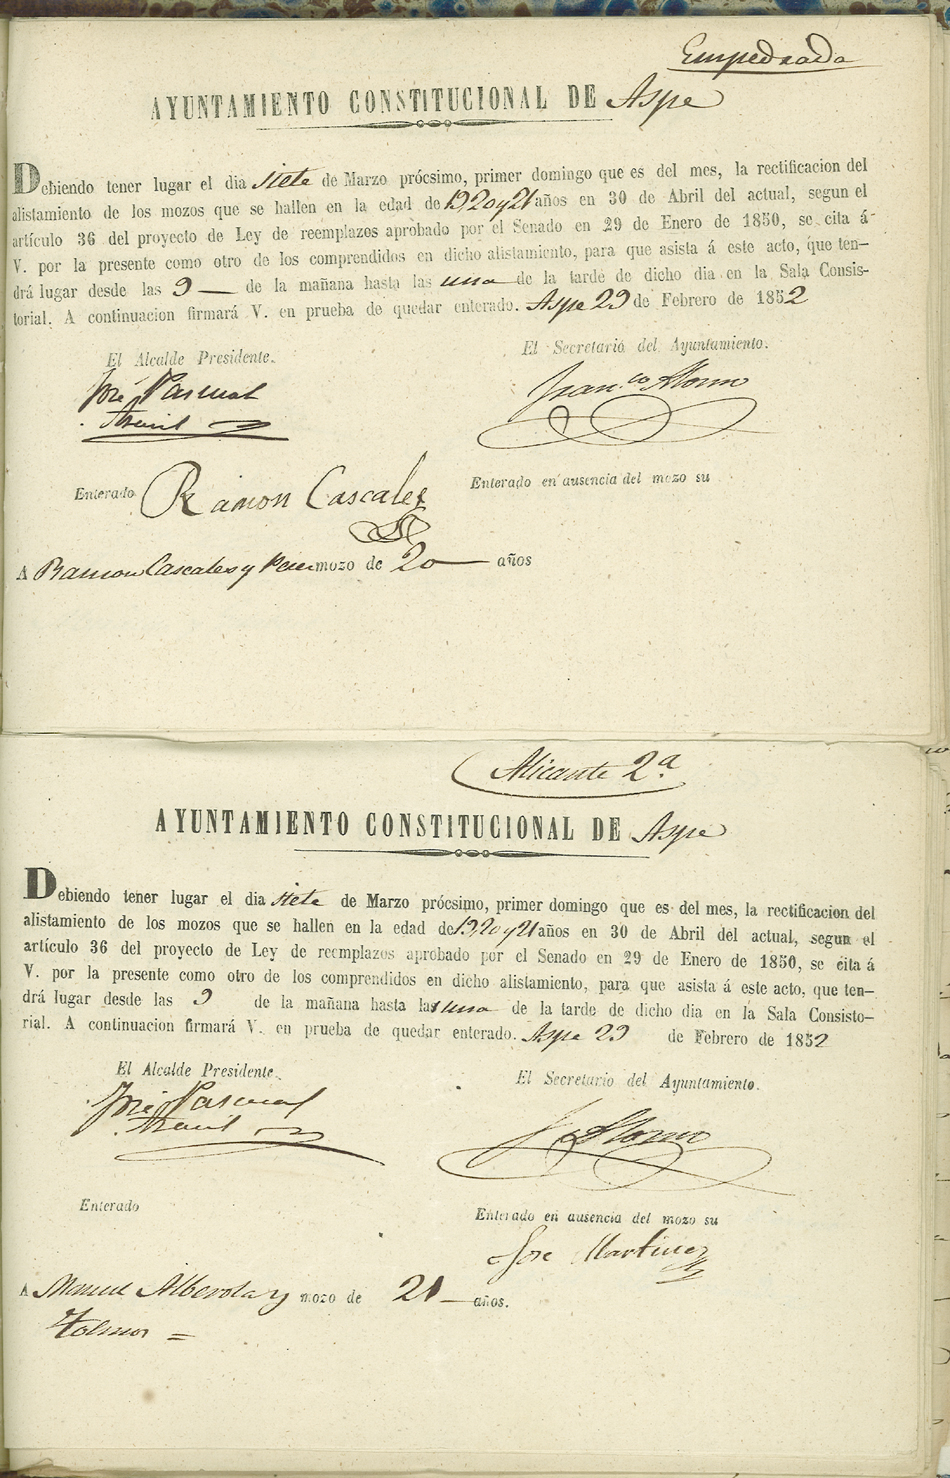 Empedrada
AYUNTAMIENTO CONSTITUCIONAL DE Aspe
Debiendo tener lugar el dia siete de Marzo prócsimo, primer domingo que es del mes, la rectificacion del
alistamiento de los mozos que se hallen en la edad de 19 20 y 21 años en 30 de Abril del actual, segun el
artículo 36 del proyecto de Ley de reemplazos aprobado por el Senado en 29 de Enero de 1850, se cita á
V. por la presente como otro de los comprendidos en dicho alistamiento, para que asista á este acto, que ten–
drá lugar desde las 9 — de la mañana hasta las una de la tarde de dicho dia en la Sala Consis–
torial. A continuacion firmará V. en prueba de quedar enterado. Aspe 29 de Febrero de 1852
El Alcalde Presidente.
El Secretario del Ayuntamiento.
José Pascual
Fran.co Alonso
Enterado Ramon Cascales
Enterado en ausencia del mozo su
A Ramon Cascales y mozo de 20 — años
Alicante 2.a
AYUNTAMIENTO CONSTITUCIONAL DE Aspe
Debiendo tener lugar el dia siete de Marzo prócsimo, primer domingo que es del mes, la rectificacion del
alistamiento de los mozos que se hallen en la edad de 19, 20 y 21 años en 30 de Abril del actual, segun el
artículo 36 del proyecto de Ley de reemplazos aprobado por el Senado en 29 de Enero de 1850, se cita á
V. por la presente como otro de los comprendidos en dicho alistamiento, para que asista á este acto, que ten–
drá lugar desde las 9 de la mañana hasta las una de la tarde de dicho dia en la Sala Consisto–
rial. A continuacion firmará V. en prueba de quedar enterado. Aspe 29 de Febrero de 1852
El Alcalde Presidente.
El Secretario del Ayuntamiento.
José Pascual
Alonso
Enterado
Enterado en ausencia del mozo su
Jose Martinez
A Manuel Alberola y mozo de 21 — años.